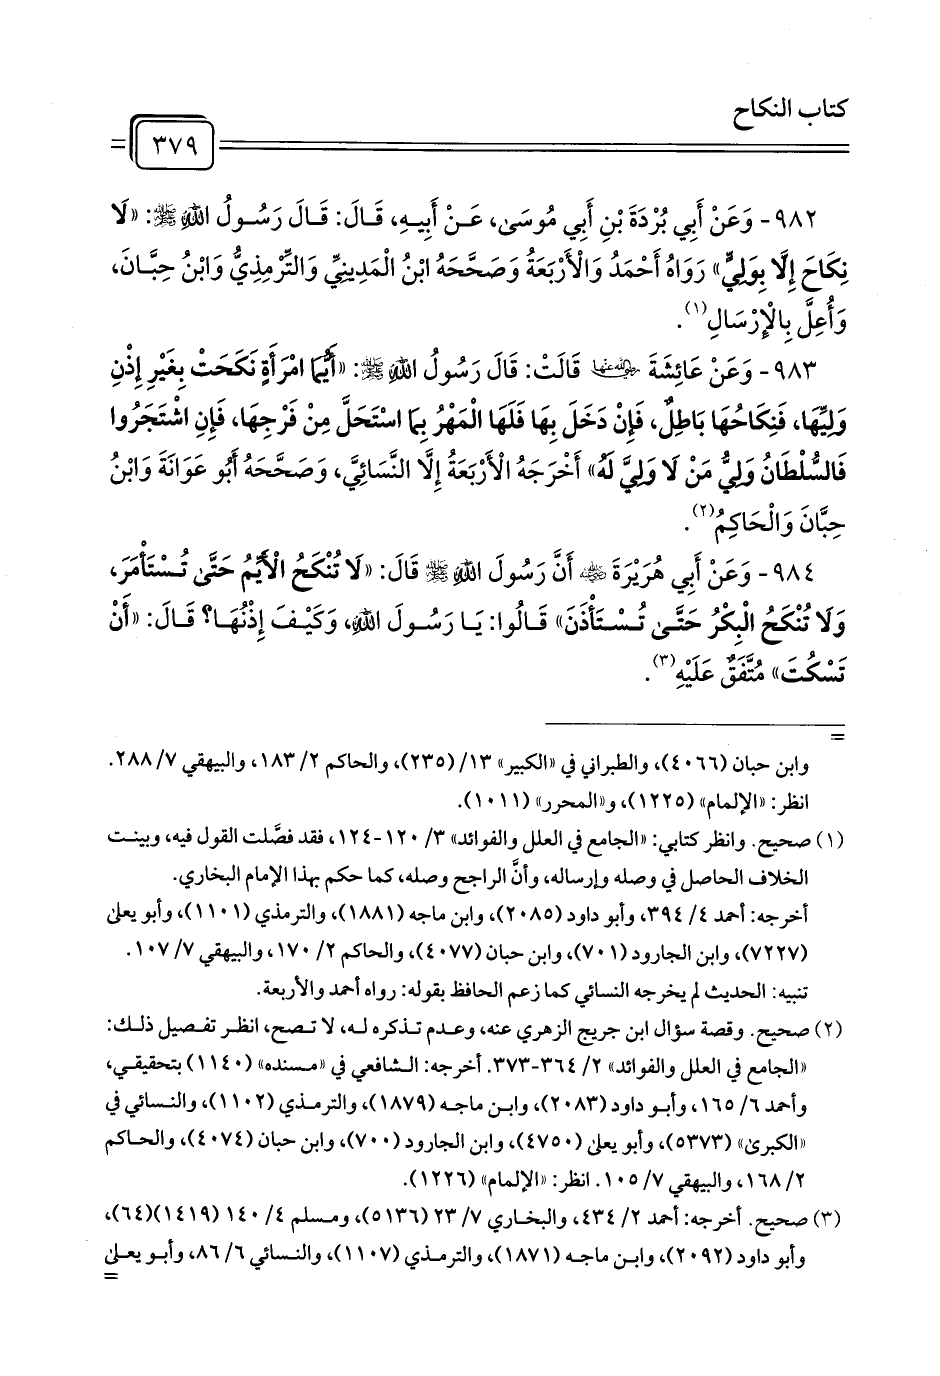 كتاب النكاح
٣٧٩
٩٨٢- وَعَنْ أَبِي بُرْدَةَ بْنِ أَبِي مُوسَىٰ، عَنْ أَبِيهِ، قَالَ: قَالَ رَسُولُ اللهِ ﷺ: «لَا
نِكَاحَ إِلَّا بِوَلِيٍّ» رَوَاهُ أَحْمَدُ وَالْأَرْبَعَةُ وَصَحَّحَهُ ابْنُ الْمَدِينِيِّ وَالتِّرْمِذِيُّ وَابْنُ حِبَّانَ،
وَأُعِلَّ بِالْإِرْسَالِ(١).
٩٨٣- وَعَنْ عَائِشَةَ رضي الله عنها قَالَتْ: قَالَ رَسُولُ اللهِ ﷺ: «أَيُّمَا امْرَأَةٍ نَكَحَتْ بِغَيْرِ إِذْنِ
وَلِيِّهَا، فَنِكَاحُهَا بَاطِلٌ، فَإِنْ دَخَلَ بِهَا فَلَهَا الْمَهْرُ بِمَا اسْتَحَلَّ مِنْ فَرْجِهَا، فَإِنِ اشْتَجَرُوا
فَالسُّلْطَانُ وَلِيُّ مَنْ لَا وَلِيَّ لَهُ» أَخْرَجَهُ الْأَرْبَعَةُ إِلَّا النَّسَائِيَّ، وَصَحَّحَهُ أَبُو عَوَانَةَ وَابْنُ
حِبَّانَ وَالْحَاكِمُ(٢).
٩٨٤- وَعَنْ أَبِي هُرَيْرَةَ رضي الله عنه أَنَّ رَسُولَ اللهِ ﷺ قَالَ: «لَا تُنْكَحُ الْأَيِّمُ حَتَّىٰ تُسْتَأْمَرَ،
وَلَا تُنْكَحُ الْبِكْرُ حَتَّىٰ تُسْتَأْذَنَ» قَالُوا: يَا رَسُولَ اللهِ، وَكَيْفَ إِذْنُهَا؟ قَالَ: «أَنْ
تَسْكُتَ» مُتَّفَقٌ عَلَيْهِ(٣).
=
وابن حبان (٤٠٦٦)، والطبراني في «الكبير» ١٣/ (٢٣٥)، والحاكم ٢/ ١٨٣، والبيهقي ٧/ ٢٨٨.
انظر: «الإلمام» (١٢٢٥)، و«المحرر» (١٠١١).
(١) صحيح. وانظر كتابي: «الجامع في العلل والفوائد» ٣/ ١٢٠-١٢٤، فقد فصَّلت القول فيه، وبينت
الخلاف الحاصل في وصله وإرساله، وأنَّ الراجح وصله، كما حكم بهذا الإمام البخاري.
أخرجه: أحمد ٤/ ٣٩٤، وأبو داود (٢٠٨٥)، وابن ماجه (١٨٨١)، والترمذي (١١٠١)، وأبو يعلىٰ
(٧٢٢٧)، وابن الجارود (٧٠١)، وابن حبان (٤٠٧٧)، والحاكم ٢/ ١٧٠، والبيهقي ٧/ ١٠٧.
تنبيه: الحديث لم يخرجه النسائي كما زعم الحافظ بقوله: رواه أحمد والأربعة.
(٢) صحيح. وقصة سؤال ابن جريج الزهري عنه، وعدم تذكره له، لا تصح، انظر تفصيل ذلك:
«الجامع في العلل والفوائد» ٢/ ٣٦٤-٣٧٣. أخرجه: الشافعي في «مسنده» (١١٤٠) بتحقيقي،
وأحمد ٦/ ١٦٥، وأبو داود (٢٠٨٣)، وابن ماجه (١٨٧٩)، والترمذي (١١٠٢)، والنسائي في
«الكبرىٰ» (٥٣٧٣)، وأبو يعلىٰ (٤٧٥٠)، وابن الجارود (٧٠٠)، وابن حبان (٤٠٧٤)، والحاكم
٢/ ١٦٨، والبيهقي ٧/ ١٠٥. انظر: «الإلمام» (١٢٢٦).
(٣) صحيح. أخرجه: أحمد ٢/ ٤٣٤، والبخاري ٧/ ٢٣ (٥١٣٦)، ومسلم ٤/ ١٤٠ (١٤١٩)(٦٤)،
وأبو داود (٢٠٩٢)، وابن ماجه (١٨٧١)، والترمذي (١١٠٧)، والنسائي ٦/ ٨٦، وأبو يعلىٰ
=